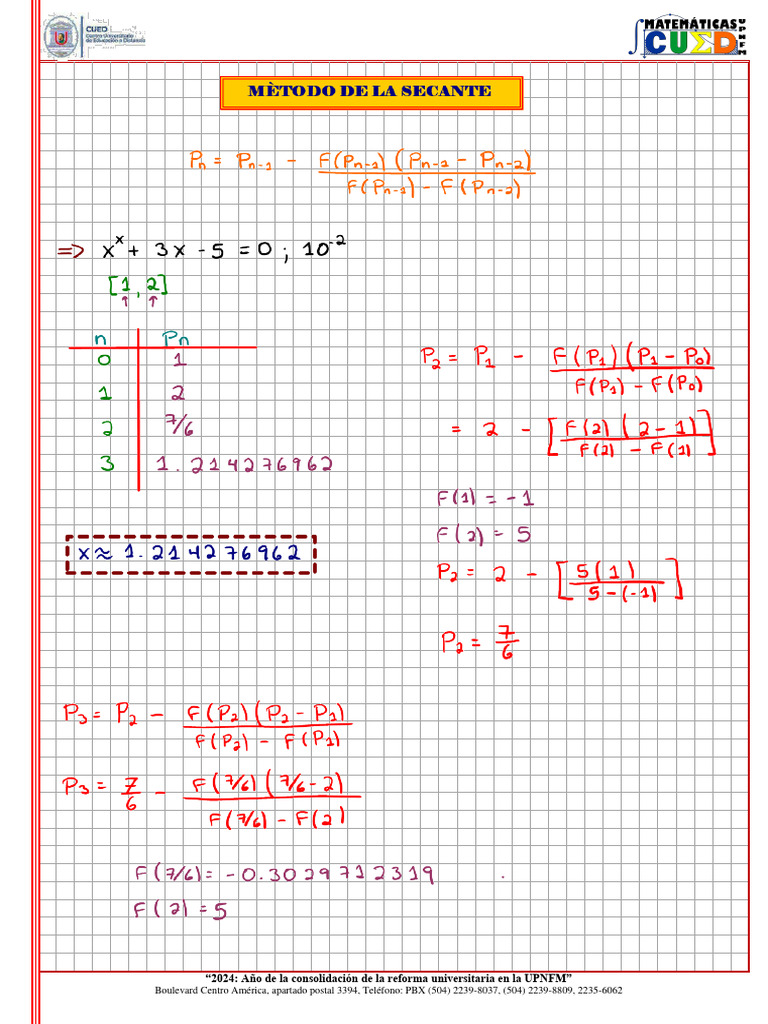 CUED
Centro Universitario
de Educación a Distancia
MATEMÁTICAS
CUED
UPNFM
MÈTODO DE LA SECANTE
Pn = Pn-1 - F(Pn-1)(Pn-1 - Pn-2) / F(Pn-1) - F(Pn-2)
=> x^x + 3x - 5 = 0 ; 10^-2
[1, 2]
↑ ↑
n Pn
0 1
1 2
2 7/6
3 1.214276962
x ≈ 1.214276962
P2 = P1 - F(P1)(P1 - P0) / F(P1) - F(P0)
= 2 - [F(2)(2 - 1) / F(2) - F(1)]
F(1) = -1
F(2) = 5
P2 = 2 - [5(1) / 5-(-1)]
P2 = 7/6
P3 = P2 - F(P2)(P2 - P1) / F(P2) - F(P1)
P3 = 7/6 - F(7/6)(7/6 - 2) / F(7/6) - F(2)
F(7/6) = -0.3029712319
F(2) = 5
“2024: Año de la consolidación de la reforma universitaria en la UPNFM”
Boulevard Centro América, apartado postal 3394, Teléfono: PBX (504) 2239-8037, (504) 2239-8809, 2235-6062